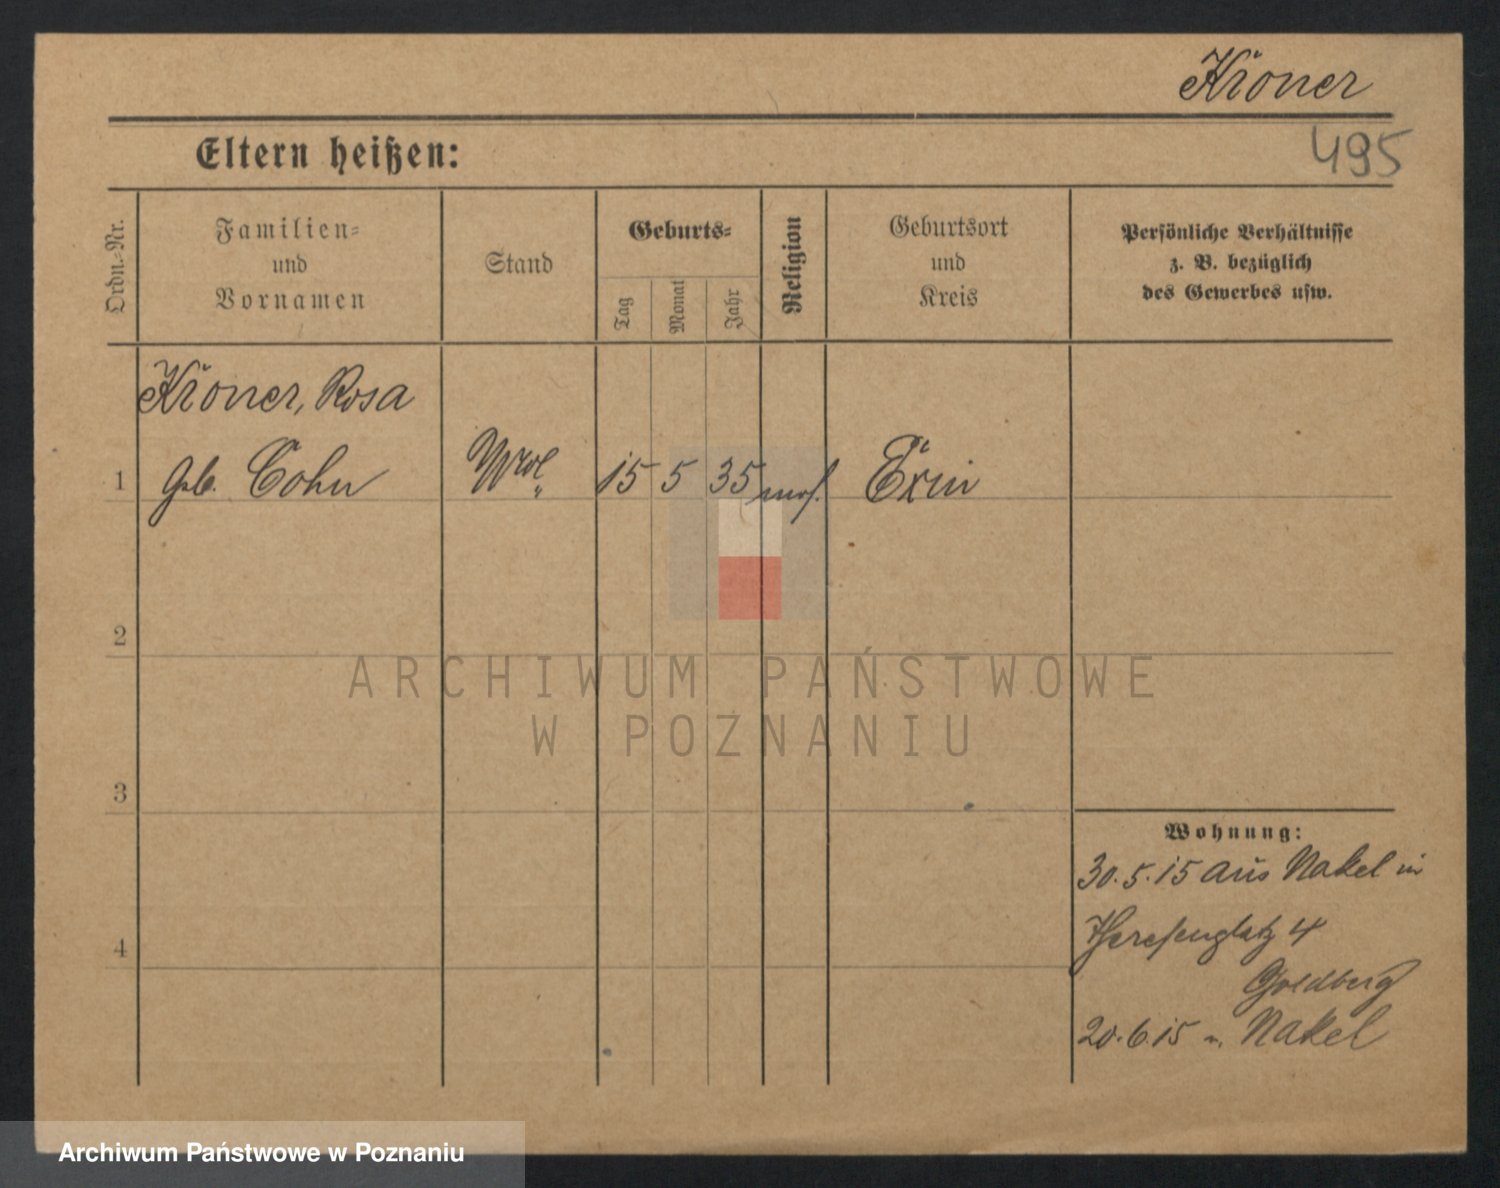 Kroner
495
Eltern heißen:
Ordn.-Nr.
Familien-
und
Vornamen
Stand
Geburts-
Tag
Monat
Jahr
Religion
Geburtsort
und
Kreis
Persönliche Verhältnisse
z. B. bezüglich
des Gewerbes usw.
Kroner, Rosa
1 geb. Cohn Ww. 15 5 35 mos. Exin
2
3
4
Wohnung:
30.5.15 aus Nakel in
Theresenplatz 4
Goldberg
20.6.15 n. Nakel
ARCHIWUM PAŃSTWOWE
W POZNANIU
Archiwum Państwowe w Poznaniu